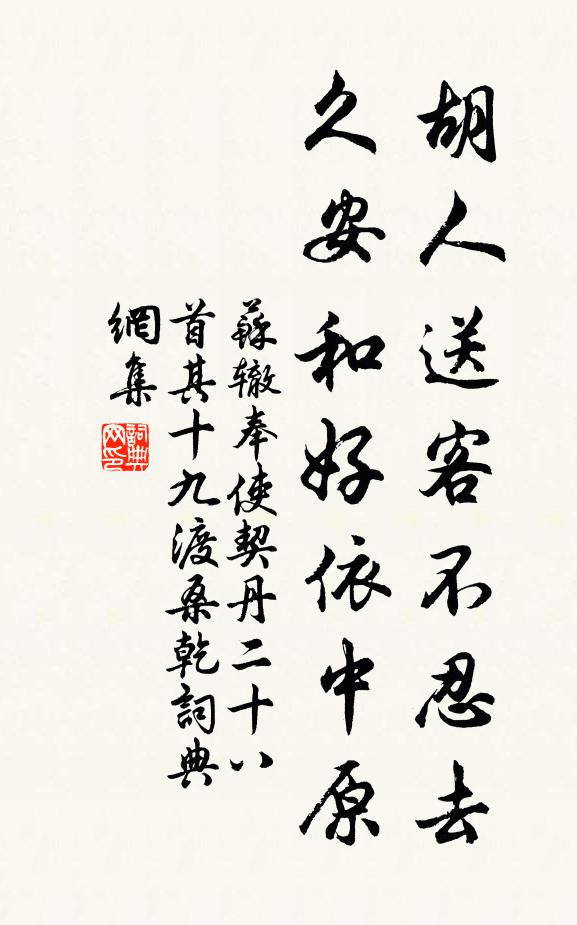 胡人送客不忍去
久安和好依中原
蘇轍奉使契丹二十八
首其十九渡桑乾詞典
網集
詞典
网印